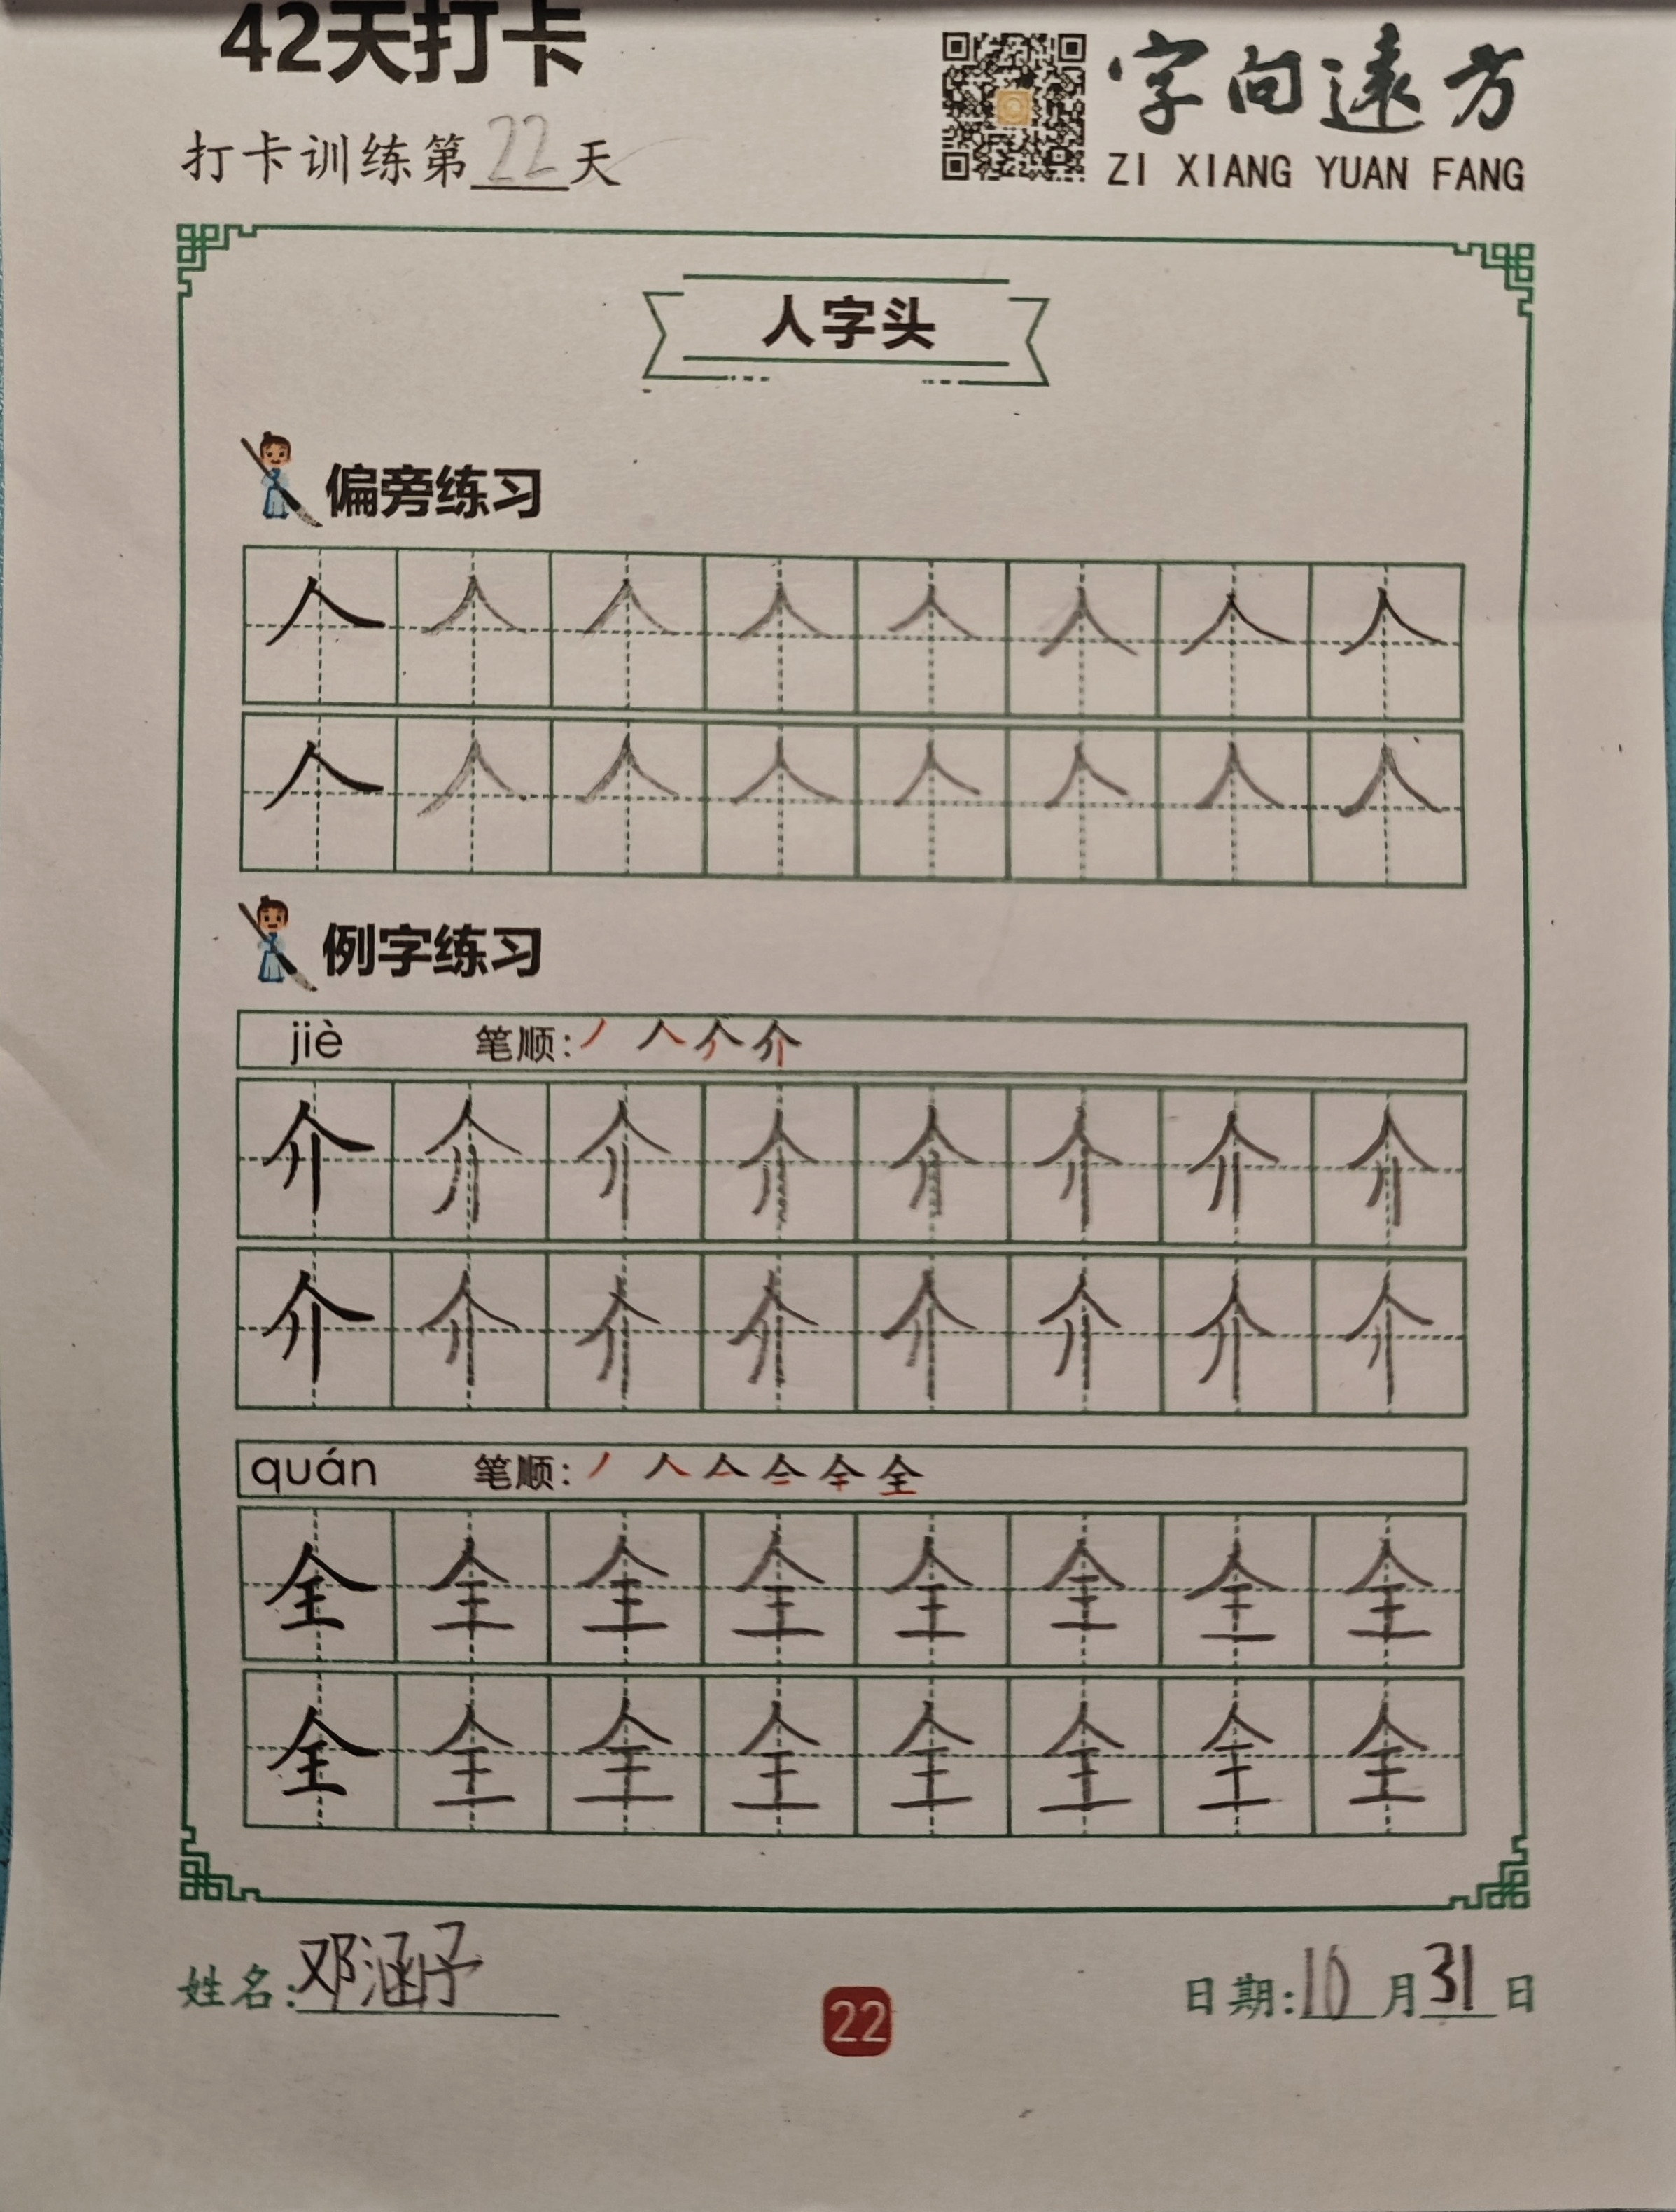 42天打卡
字向遠方
打卡训练第22天
ZI XIANG YUAN FANG
人字头
偏旁练习
人 人 人 人 人 人 人 人
人 人 人 人 人 人 人 人
例字练习
jiè 笔顺:
介 介 介 介 介 介 介 介
介 介 介 介 介 介 介 介
quán 笔顺:
全 全 全 全 全 全 全 全
全 全 全 全 全 全 全 全
姓名:邓涵予
22
日期:10月31日